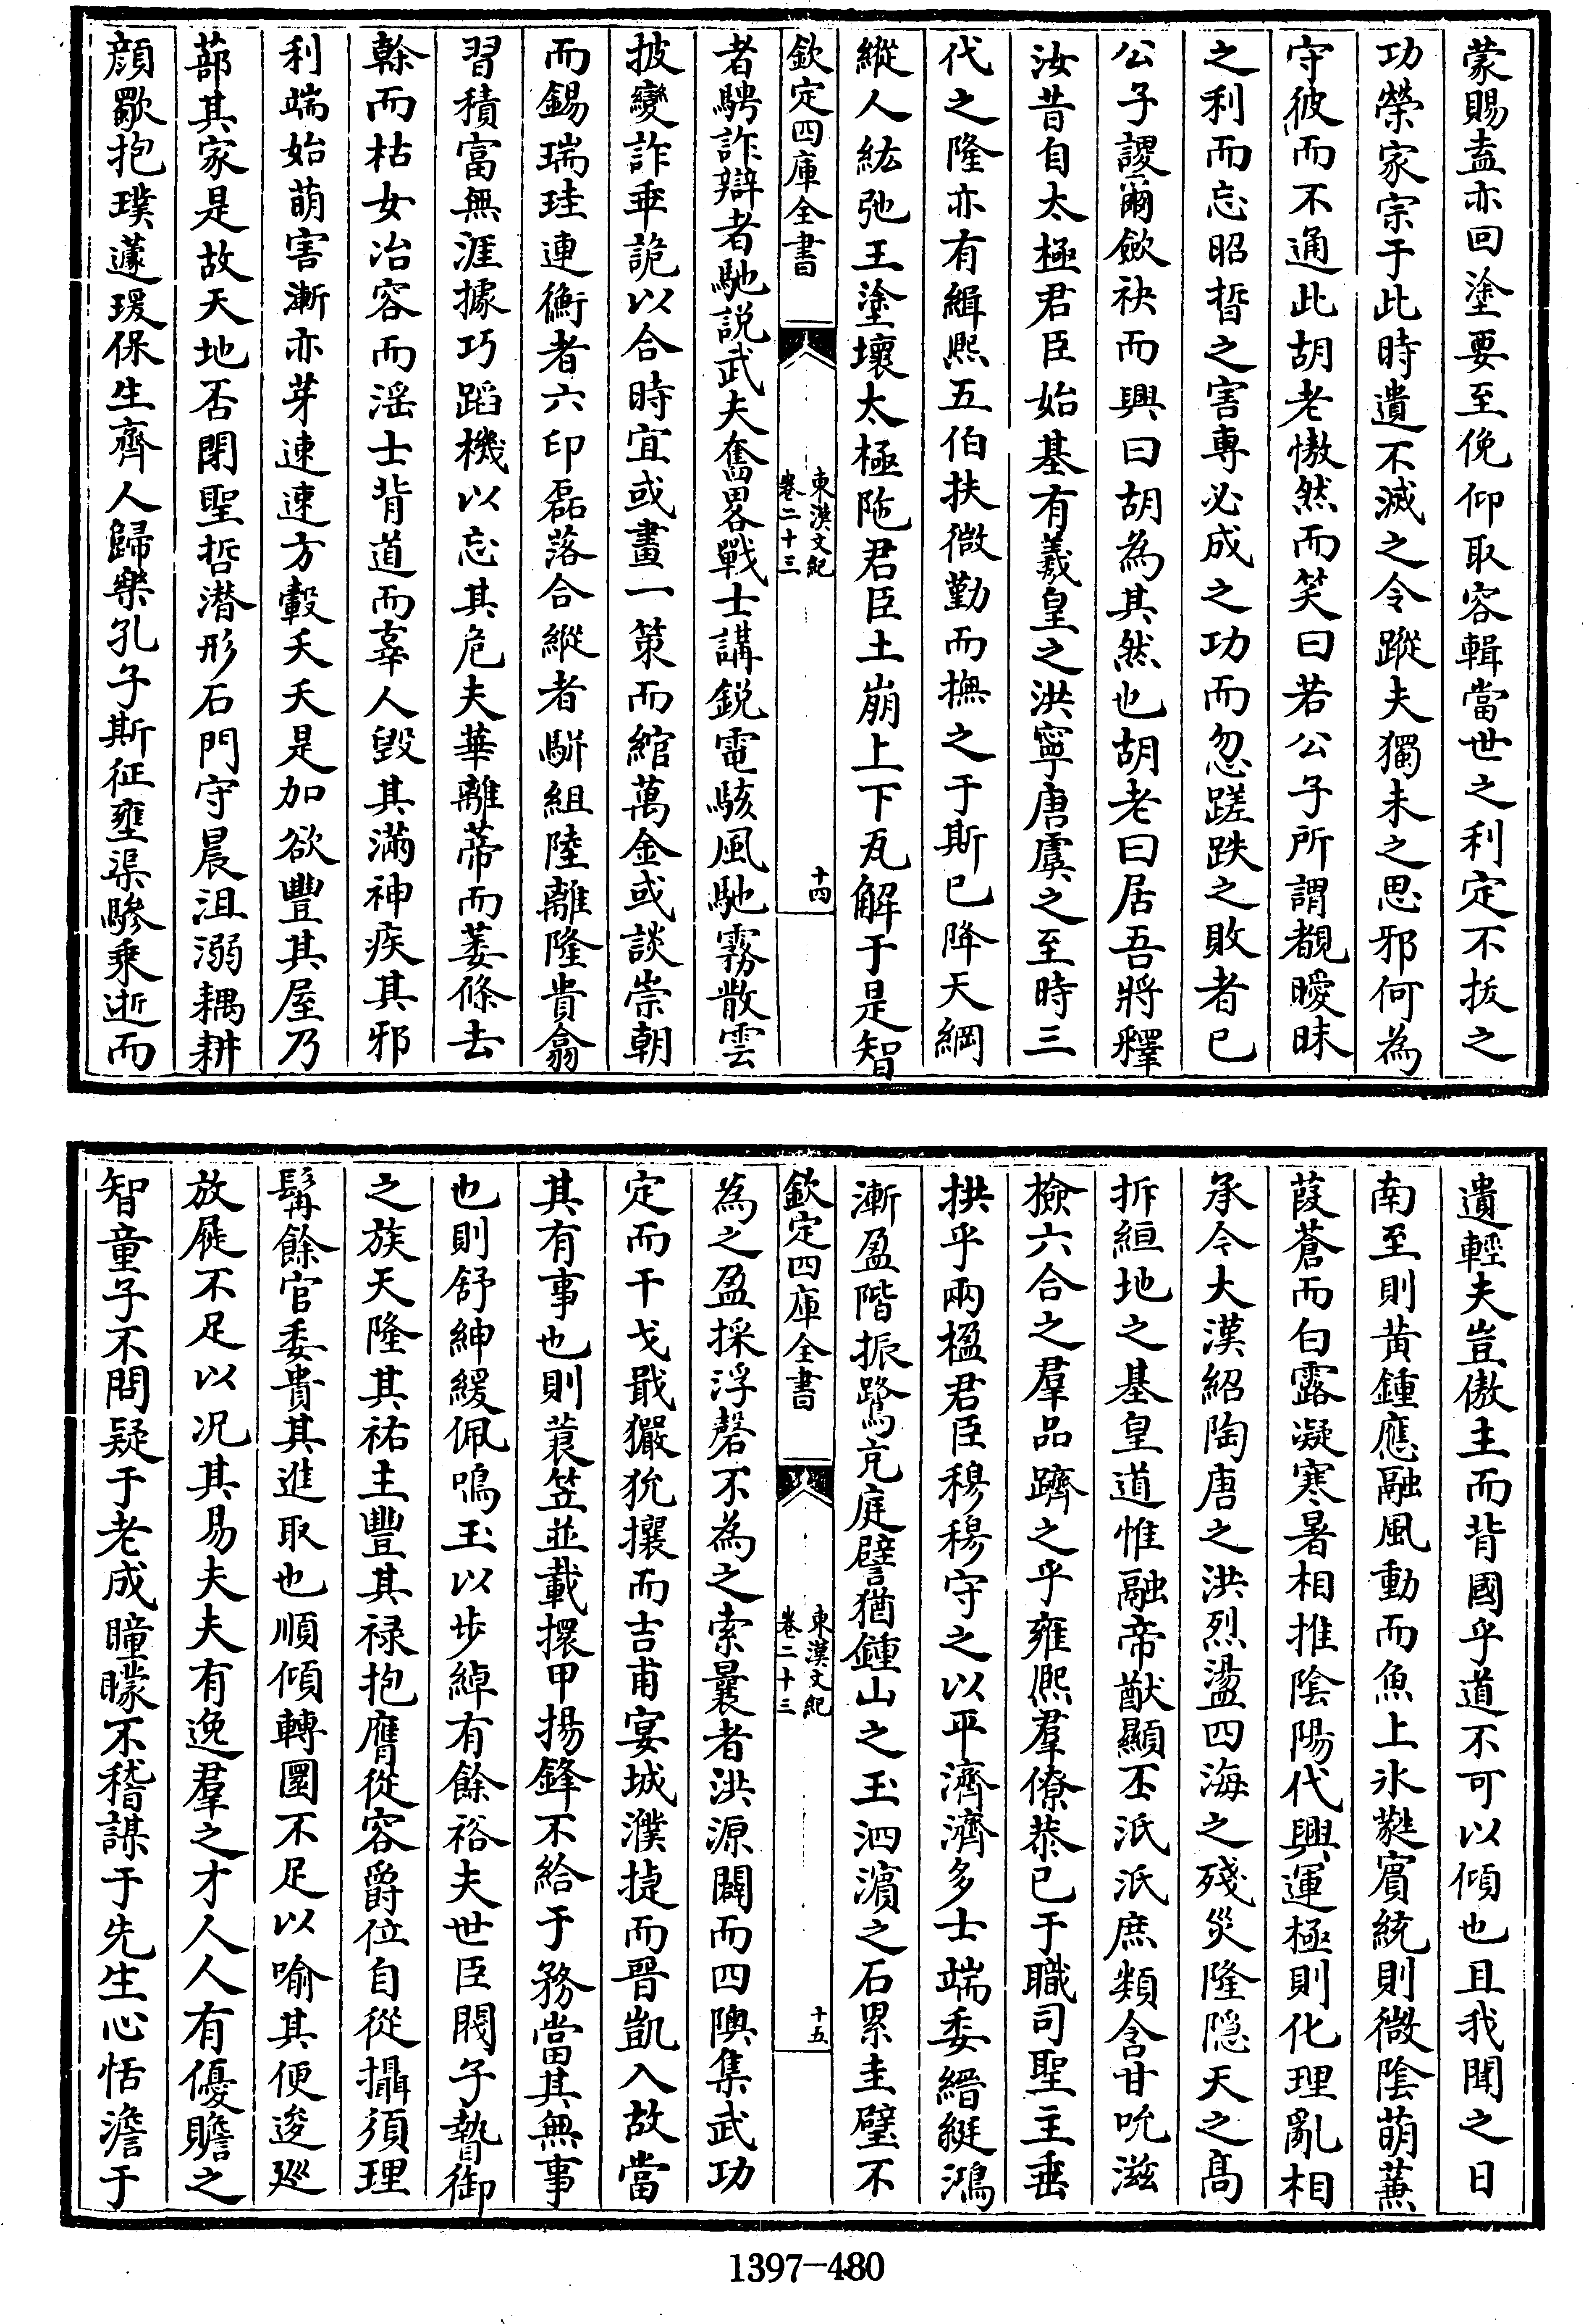 蒙賜盍亦回塗要至俛仰取容輯當世之利定不拔之
功榮家宗于此時遺不滅之令蹤夫獨未之思邪何為
守彼而不通此胡老慠然而笑曰若公子所謂覩曖昧
之利而忘昭晳之害專必成之功而忽蹉跌之敗者已
公子謖爾斂袂而興曰胡為其然也胡老曰居吾將釋
汝昔自太極君臣始基有羲皇之洪寧唐虞之至時三
代之隆亦有緝熙五伯扶微勤而撫之于斯已降天綱
縱人紘弛王塗壞太極陁君臣土崩上下瓦解于是智
欽定四庫全書
東漢文紀
卷二十三
十四
者騁詐辯者馳説武夫奮畧戰士講鋭電駭風馳霧散雲
披變詐乖詭以合時宜或畫一策而綰萬金或談崇朝
而錫瑞珪連衡者六印磊落合縱者駢組陸離隆貴翕
習積富無涯據巧蹈機以忘其危夫華離蒂而萎條去
榦而枯女冶容而滛士背道而辜人毁其滿神疾其邪
利端始萌害漸亦芽速速方轂夭夭是加欲豐其屋乃
蔀其家是故天地否閉聖哲潜形石門守晨沮溺耦耕
顔歜抱璞蘧瑗保生齊人歸樂孔子斯征雍渠驂乗逝而
遺輕夫豈傲主而背國乎道不可以傾也且我聞之日
南至則黄鍾應融風動而魚上氷蕤賓統則微陰萌蒹
葭蒼而白露凝寒暑相推陰陽代興運極則化理亂相
承今大漢紹陶唐之洪烈盪四海之殘災隆隠天之髙
拆絙地之基皇道惟融帝猷顯丕汦汦庶類含甘吮滋
撿六合之羣品躋之乎雍熙羣僚恭已于職司聖主垂
拱乎兩楹君臣穆穆守之以平濟濟多士端委縉綎鴻
漸盈階振鷺充庭譬猶鍾山之玉泗濵之石累圭璧不
欽定四庫全書
東漢文紀
卷二十三
十五
為之盈採浮磬不為之索曩者洪源闢而四隩集武功
定而干戈戢玁狁攘而吉甫宴城濮捷而晉凱入故當
其有事也則蓑笠並載擐甲揚鋒不給于務當其無事
也則舒紳緩佩鳴玉以步綽有餘裕夫世臣閥子暬御
之族天隆其祐主豐其禄抱膺從容爵位自從攝須理
髯餘官委貴其進取也順傾轉圓不足以喻其便逡廵
放屣不足以况其易夫夫有逸羣之才人人有優贍之
智童子不問疑于老成瞳矇不稽謀于先生心恬澹于
1397-480